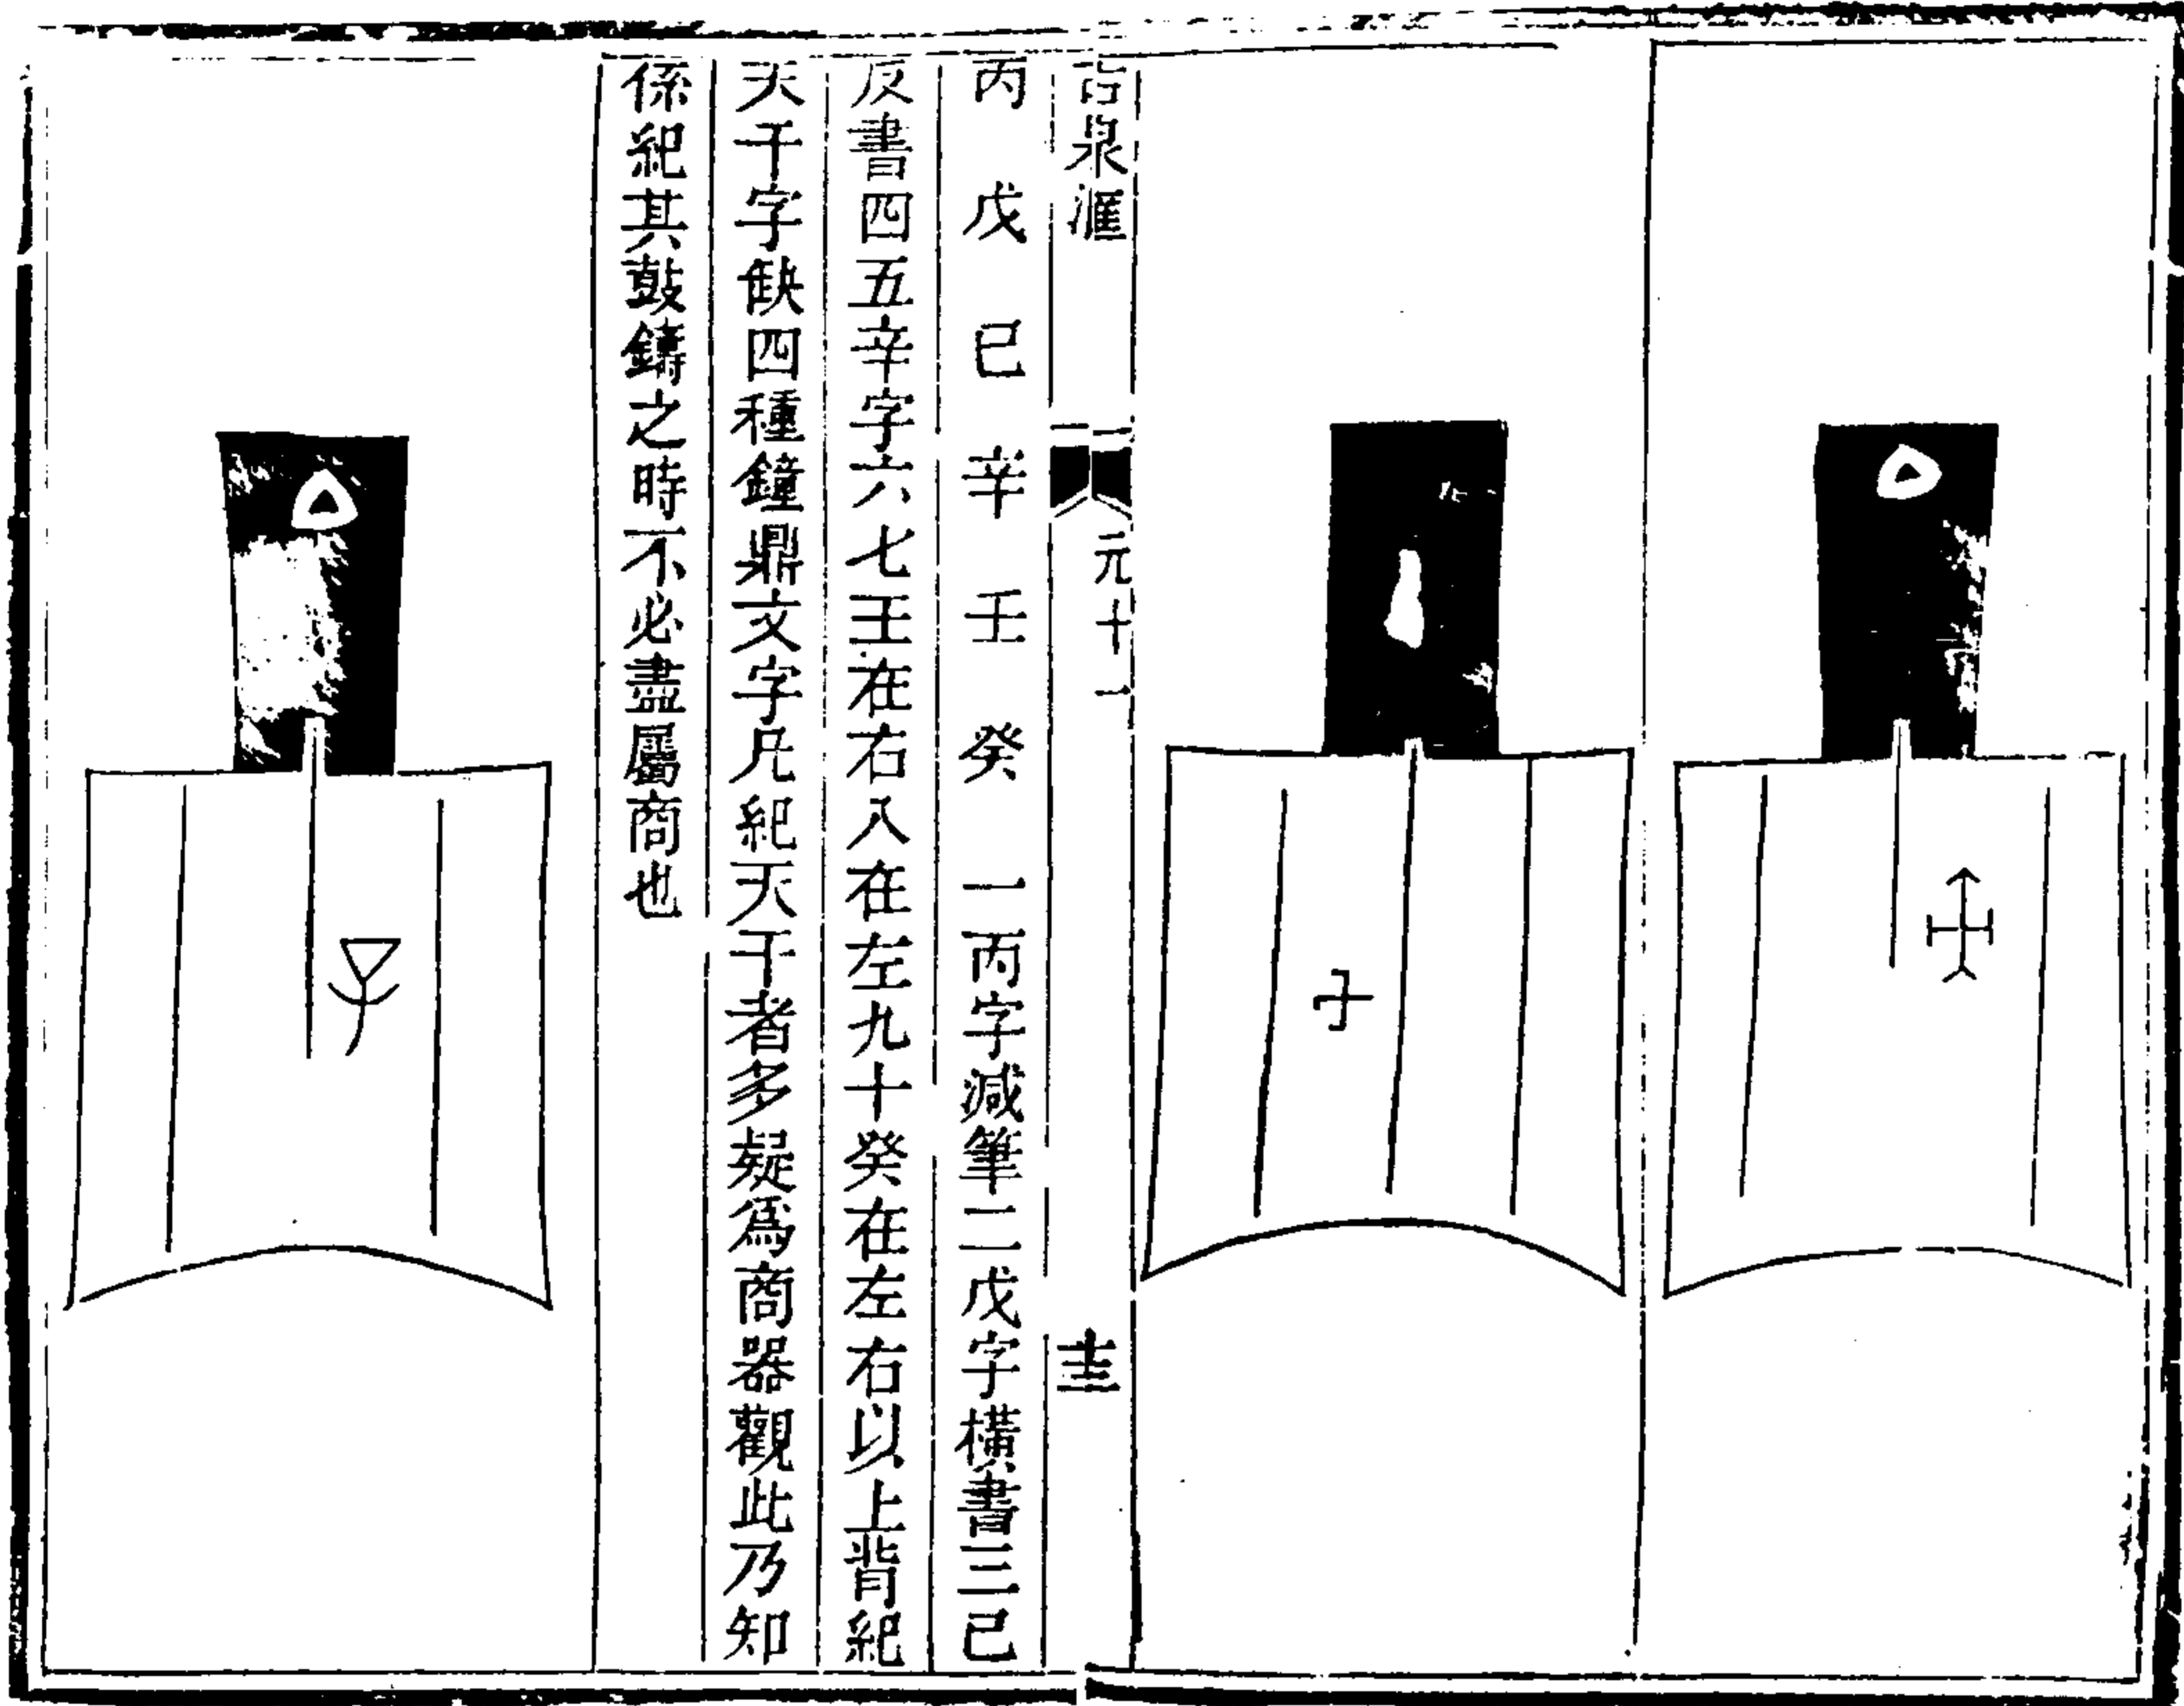 古泉滙 元十一 十三
丙 戊 己 辛 壬 癸 一丙字減筆二戊字橫書三己
反書四五辛字六七王在右八在左九十癸在左右以上背紀
天干字缺四種鐘鼎文字凡紀天干者多疑為商器觀此乃知
係紀其鼓鑄之時不必盡屬商也